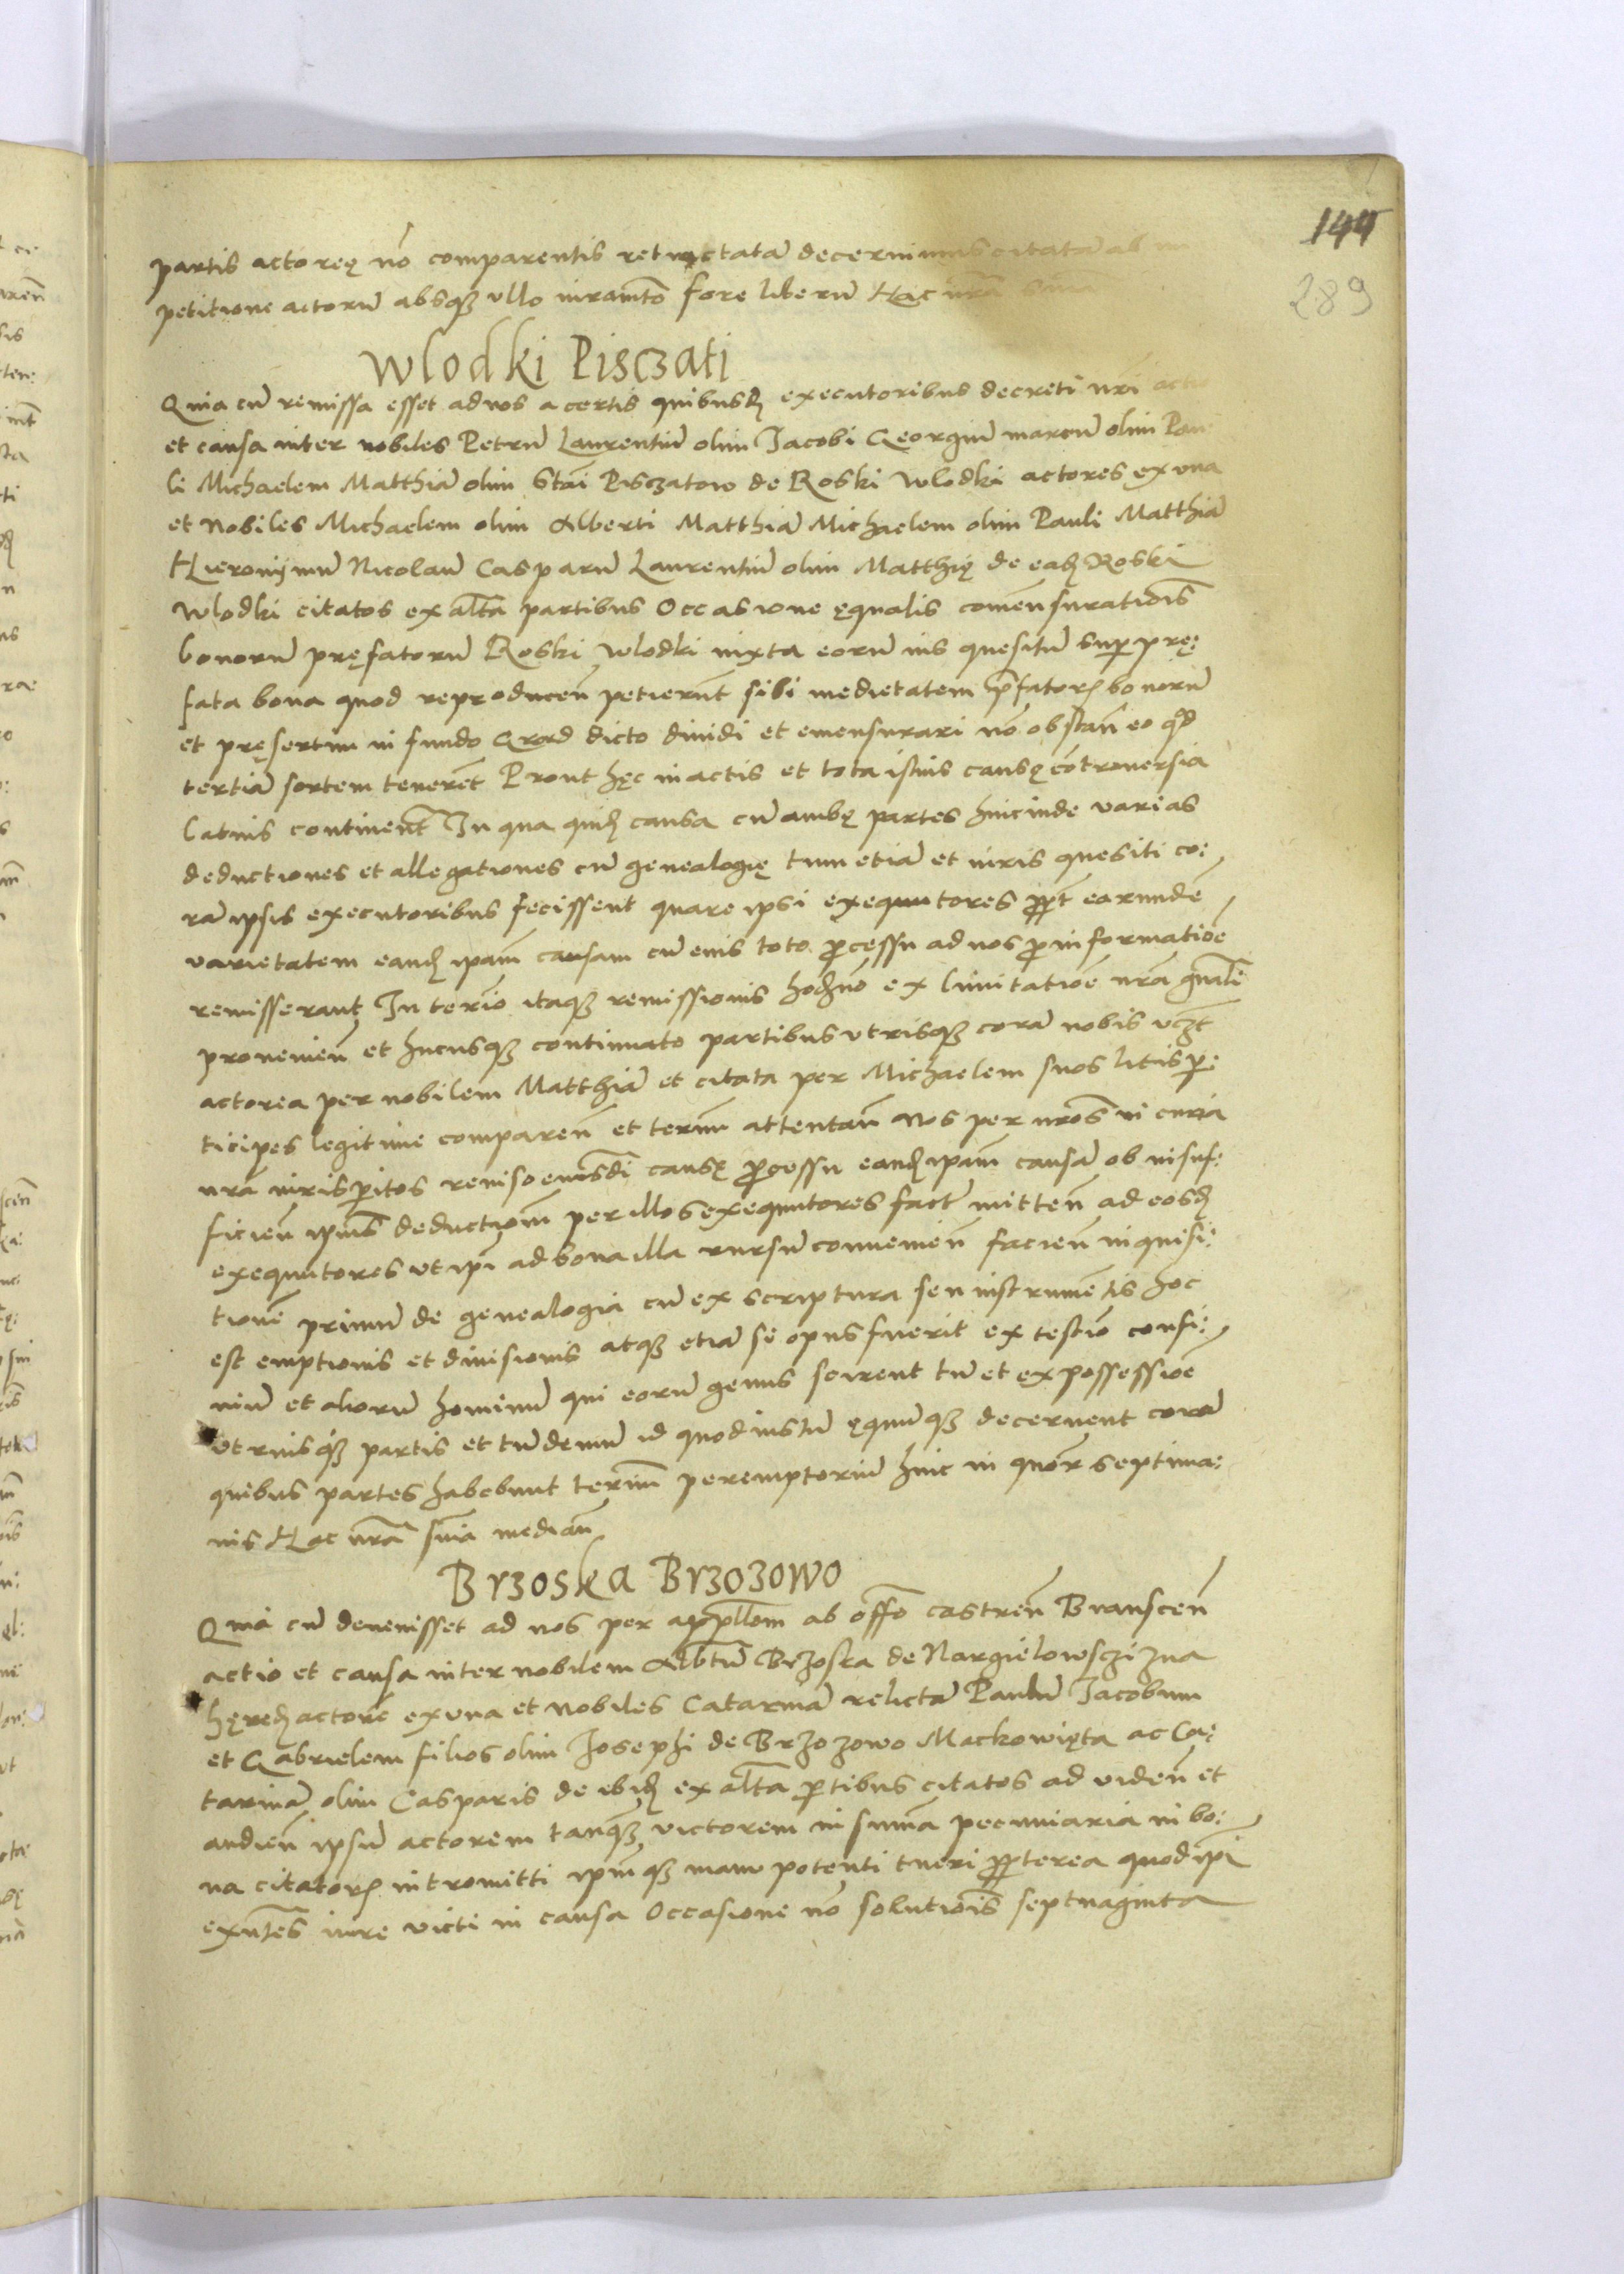 144
289
partis actoreę nō comparentis retractatā decernimus citatā ab
petitione actorū absqȝ vllo iuramto fore liberū Hac nrā
Wlodki Pisczati
Quia cū remissa esset ad nos a certis quibusd executoribus decreti nri actio
et causa inter nobiles Petrū Laurentiū olim Jacobi Georgiū marcū olim Pau
li Michaelem Matthiā olim Stāi Pisczatow de Roski Wlodki actores ex vna
et Nobiles Michaelem olim Alberti Matthiā Michaelem olim Pauli Matthiā
Hieronijmū Nicolaū Casparū Laurentiū olim Matthię de ead Roski
Wlodki citatos ex altā partibus Occasione ęqualis comēnsurationis
bonorū pręfatorū Roski Wlodki iuxta eorū ius quesitū sup prę:
fata bona quod reproducen̄ petierūt sibi medietatem pfatorȝ bonorū
et pręsertim in fundo Grod dicto diuidi et emensurari nō obstan̄ eo qd
tertiā sortem tenerēt Prout hęc in actis et tota istius causę cōtrouersia
latius continent In qua quid causa cū ambę partes hincinde varias
deductiones et allegationes cū genealogię tum etiā et iuris quesiti co:
rā ipsis executoribus fecissent quare ipsi exequutores ppt earundē
varietatem eand ipam causam cū eius toto pcessu ad nos p informatiōe
remisserant In terīo itaqȝ remissionis hodno ex limitatiōe nrā gnali
prouenien̄ et hucusqȝ continuato partibus vtrisqȝ corā nobis vczt
actorea per nobilem Matthiā et citata per Michaelem suos litis p:
ticipes legitime comparen̄ et termū attentan̄ Nos per nros in curia
nrā iuris pitos reuiso eiusdi causę pcessu eand ipam causā ob insuf:
ficien̄ ipius deductionm per illos exequutores fact mitten̄ ad eosd
exequutores vt ipi ad bona illa rursū conuenien̄ facien̄ inquisi:
tionē primū de genealogia cū ex scriptura seu instrumētis hoc
est emptionis et diuisionis atqȝ etiā se opus fuerit ex testīo confi:
niū et aliorū hominū qui eorū genus scirent tū et ex possessiōe
vtriusqȝ partis et tū demū id quod iustū ęquūqȝ decernent corā
quibus partes habebunt termū peremptoriū hinc in quor septima:
nis Hac nrā snia median̄
Brzoska Brzozowo
Quia cū deuenisset ad nos per appllom ab offo castren̄ Branscen̄
actio et causa inter nobilem Albtū Brzoska de Nargielowsczizna
hęred actorē ex vna et Nobiles Catarinā relictā Paulū Jacobum
et Gabrielem filios olim Josephi de Brzozowo Mackowięta ac Ca:
tarinā olim Casparis de ibid ex altā ptibus citatos ad viden̄ et
audien̄ ipsū actorem tanqȝ victorem in summa pecuniaria in bo:
na citatorȝ intromitti ipmqȝ manu potenti tueri ppterea quod ipi
exntes iure victi in causa Occasione nō solutiōis septuaginta